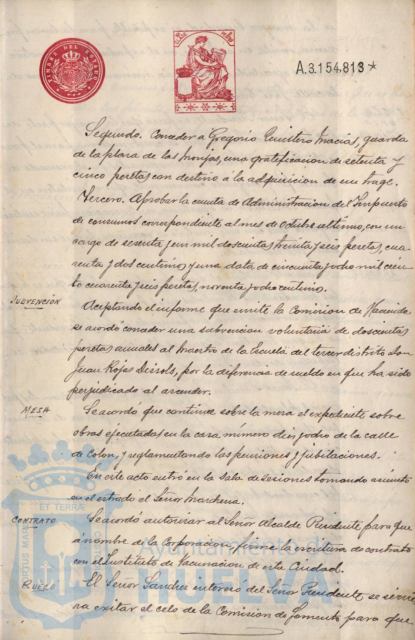 TIMBRE DEL ESTADO
A.3.154.813*
Segundo. Conceder a Gregorio Quintero Macías, guarda
de la plaza de las Monjas, una gratificacion de setenta y
cinco pesetas con destino á la adquisicion de un traje.
Tercero. Aprobar la cuenta de Administracion del Impuesto
de consumos correspondiente al mes de Octubre ultimo, con un
cargo de sesenta y un mil doscientas treinta y seis pesetas, cua-
renta y dos centimos y una data de cincuenta y ocho mil cien-
to cuarenta y seis pesetas, noventa y ocho centimos.
SUBVENCIÓN
Aceptando el informe que emite la Comision de Hacienda
se acordó conceder una subvencion voluntaria de doscientas
pesetas anuales al Maestro de la Escuela del tercer distrito Don
Juan Rojas, por la diferencia de sueldo en que ha sido
perjudicado al ascender.
MESA
Se acordó que continue sobre la mesa el expediente sobre
obras ejecutadas en la casa número diez y ocho de la calle
de Colon, y reglamentando las pensiones y jubilaciones.
En este acto entró en la Sala de Sesiones tomando asiento
en el estrado el Señor Marchena.
CONTRATO
Se acordó autorizar al Señor Alcalde Presidente para que
a nombre de la Corporacion, firme la escritura de contrato
con el Instituto de Vacunacion de esta Ciudad.
RUEGO
El Señor Sanchez interesó del Señor Presidente se sirvie-
ra exitar el celo de la Comision de Fomento para que
Ayuntamiento de